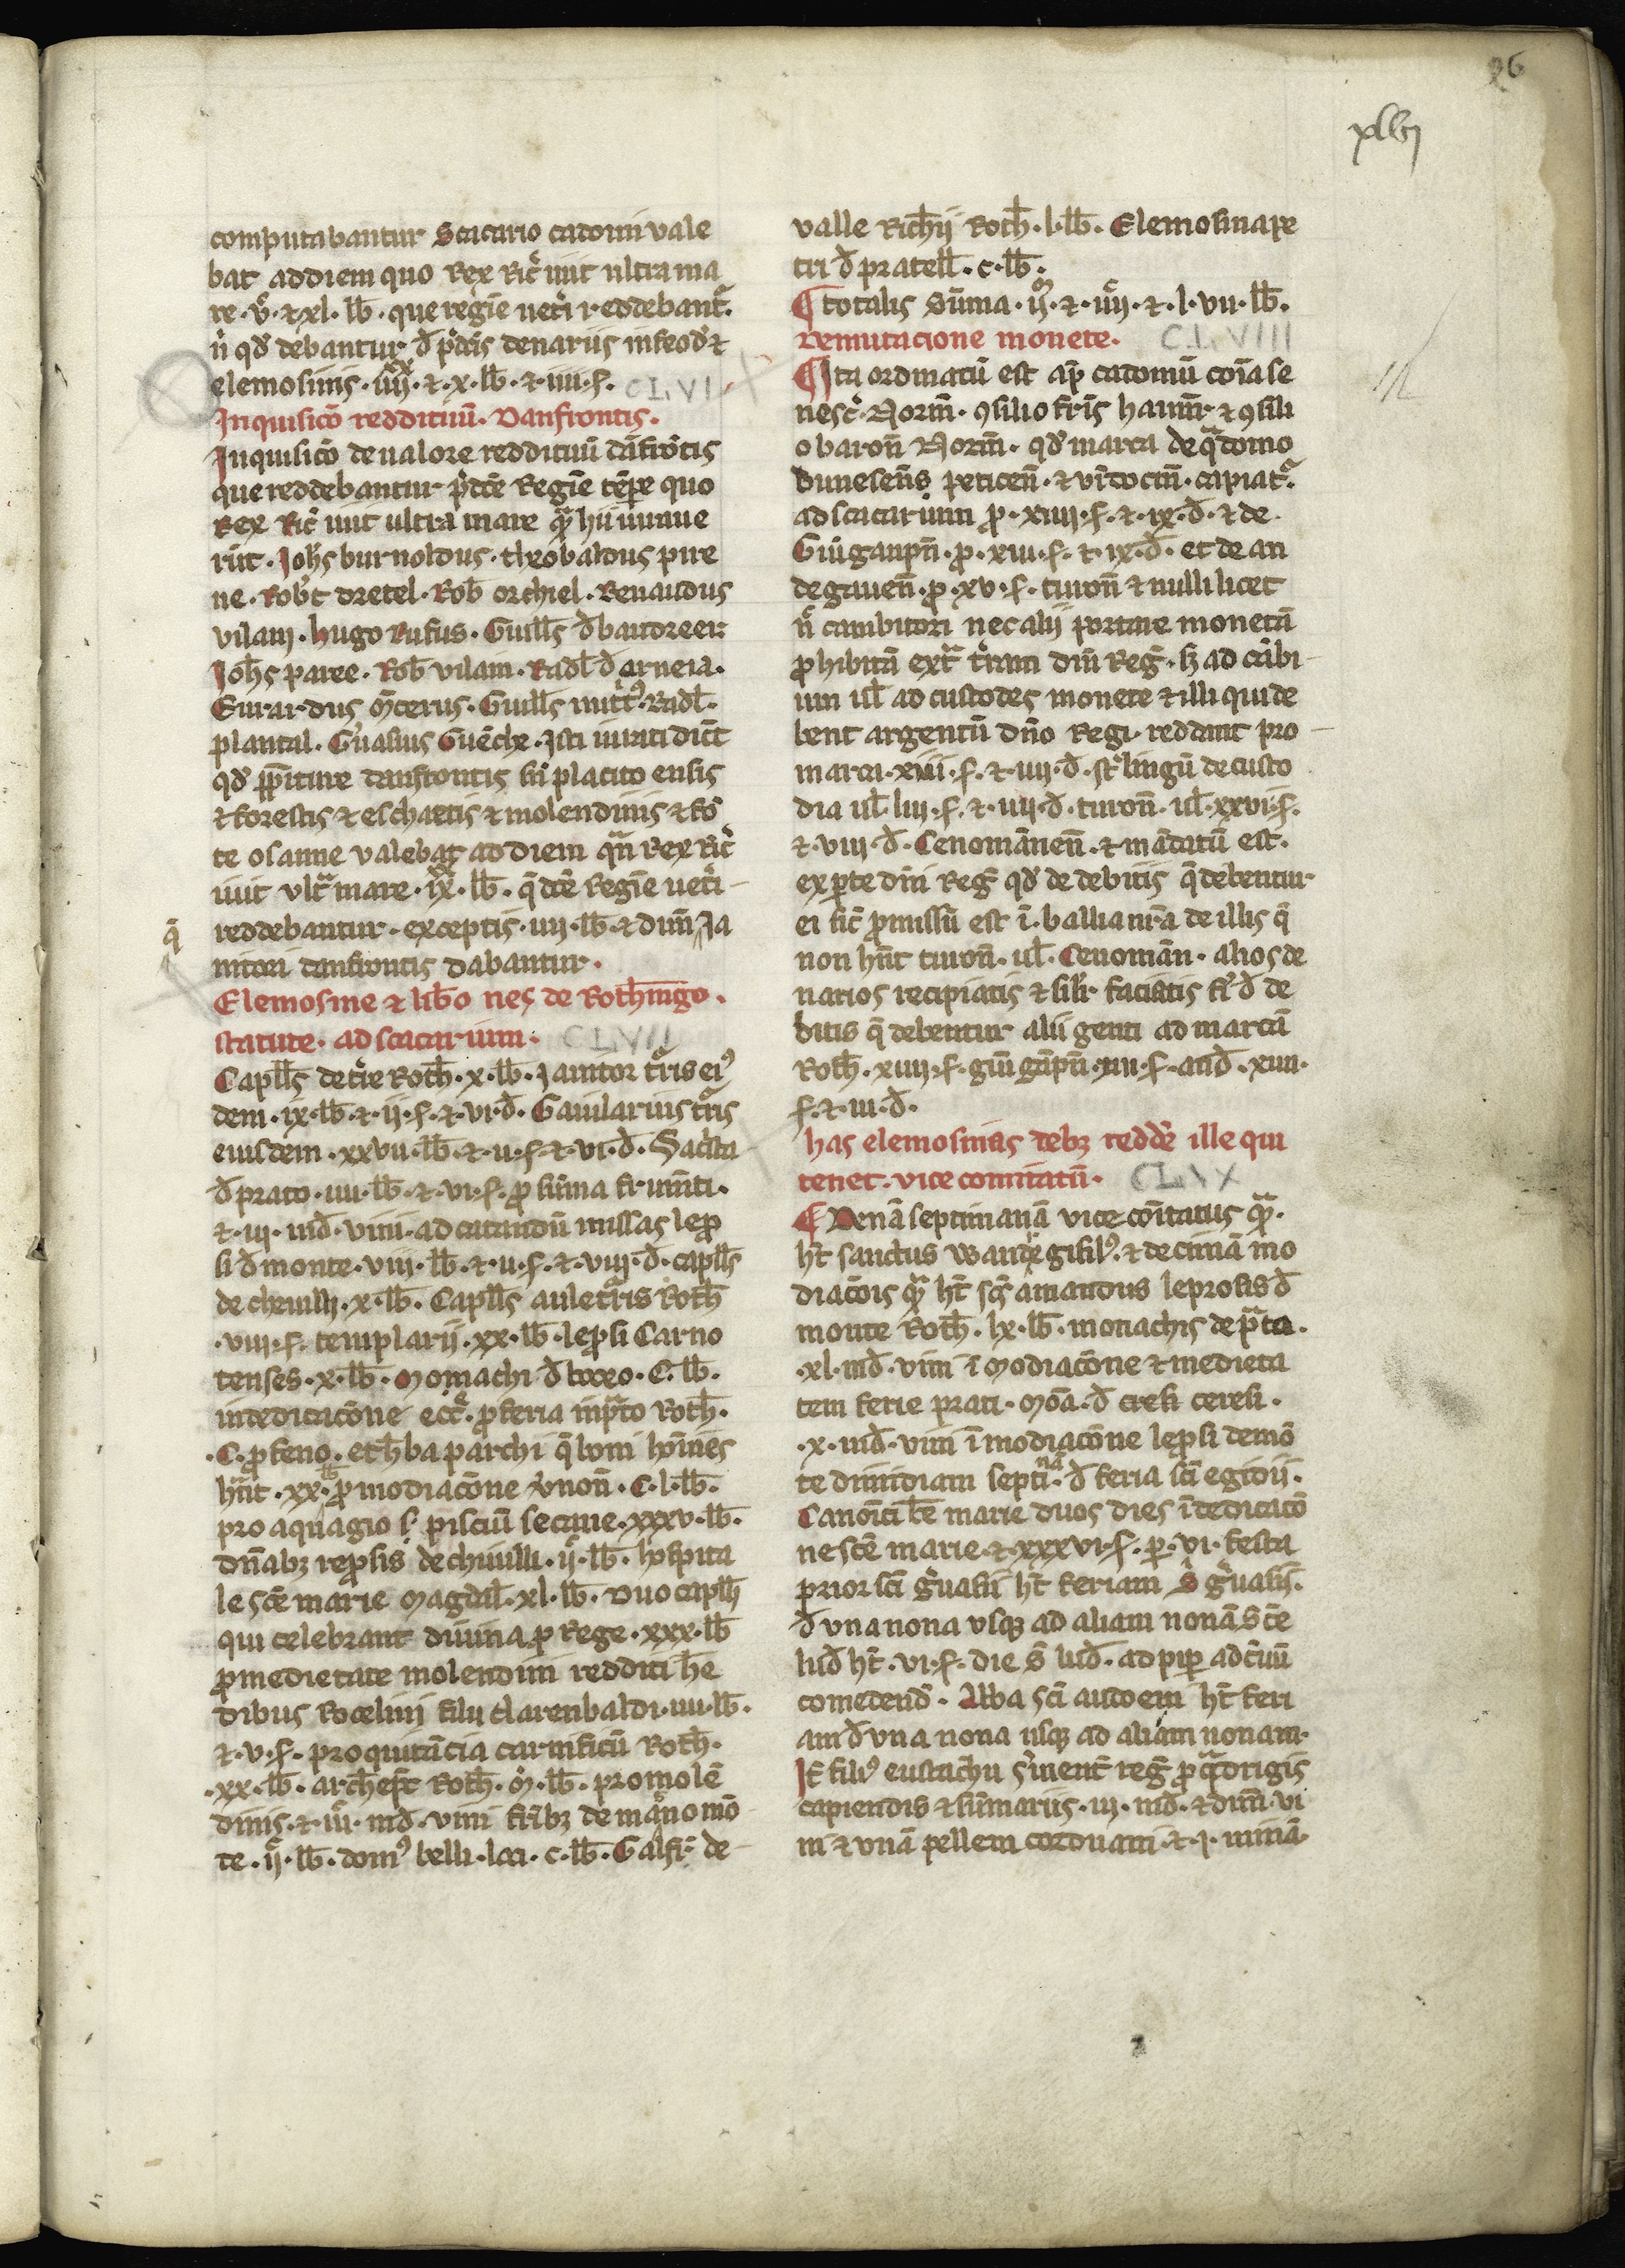 26
xlvij
computabantur Scacario cadomi vale
bat ad diem quo Rex Ric̉ iuit ultra ma
re · v̉ · ⁊ xl · lb̄ · que regīe uet̉i reddebant᷑.
ꝯ qđ debantur đ p̉dc̄is denariis in feod̉ ⁊
elemosinis · iiij · ⁊ · x · lb̄ · ⁊ · iiii · s̄ · CLVI
Inquisic̄o reddituū · Danfrontis ·
Inquisic̄o de ualore reddituū dāfrōtis
que reddebantur p̉dc̄e Regīe tēpe quo
Rex Ric̉ iuit ultra mare hii iuraue
rūt · Joh̄s burnoldus · theobaldus pire
ne · Rob̉t dretel · Rob̄ orchiel · Renaudus
vilain · hugo Rufus · Guill̄s đ baudreer
Joh̄s paree · Rob̄ vilain · Radl̄ đ arneia ·
Eurardus m̄cerus · Guill̄s · Radl̄ ·
plantal · G̉uasius Guēche · Isti iurati dic̄t
qđ danfrontis sn̄ placito ensis
⁊ forestis ⁊ eschaetis ⁊ molendinis ⁊ fō
te osanne valebat ad diem qn̄ Rex Ric̉
iuit vlt᷑ mare · ix · lb̄ · q̄ dc̄e Regīe uet̉i
reddebantur · exceptis · iiij · lb̄ · ⁊ dim̄ Ja
q̄
nitori danfrontis dabantur ·
Elemosine ⁊ lib̉o nes de Rothmgo ·
statute · ad scacarium · CLVII
Capll̄s de t̉re Roth̄ · x · lb̄ · Janitor t̉ris ei᷒
dem · ix · lb̄ · ⁊ · ij · s̄ · ⁊ · vi · đ · Gauilarius t̉ris
eiusdem · xxvii · lb̄ · ⁊ · ii · s̄ · ⁊ · vi · đ · Sac̉sta
đ prato · iiii · lb̄ · ⁊ · vi · s̄ · ꝓ sūma frumēti ·
⁊ · iij · mđ · vini · ad cantandū missas lepro
si đ monte · viij · lb̄ · ⁊ · ii · s̄ · ⁊ · viij · đ · capll̄s
de cheuilli · x · lb̄ · Capll̄s aule t̉ris Roth̄
· viij · s̄ · templarij · xx · lb̄ · lepsi Carno
tenses · x · lb̄ · Monachi đ · C · lb̄ ·
in dedicac̄one ecc̉ · ꝓ feria in p̄to Roth̄ ·
· C · ꝓ feno · et h̉ba parchi q̄ boni hoīnes
hn̄t · xx · lb̄ ꝓ modiac̄one v̉non̄ · C · l · lb̄ ·
pro aquagio ⁊ pisciū secane · xxxv · lb̄ ·
dn̄abꝫ repsis de chiuilli · ij · lb̄ · hospita
le sc̄e marie Magdal̄ · xl · lb̄ · Duo capll̄i
qui celebrant diuina ꝓ Rege · xxx · lb̄
ꝓ medietate molendini redditi he
dibus Rocelini filii clarenbaldi · iiii · lb̄ ·
⁊ · v · s̄ · pro quitācia carnificū Roth̄ ·
· xx · lb̄ · archiep̄c Roth̄ · m̉ · lb̄ · pro molē
dinis · ⁊ · iij · mđ · vini fr̄ibꝫ de mago mō
te · ij · lb̄ · dom᷒ belli · loci · c · lb̄ · Galfr̄ · de
valle Richij Roth̄ · l · lb̄ · Elemosina pe
tri đ pratell̄ · c · lb̄ ·
¶ totalis sūma · ij · ⁊ · iiij · ⁊ · l · vii · lb̄ ·
De mutacione monete · CLVIII
¶ Ita ordinatū est ap̄ cadomū corā se
nesc̉ · Norm̄ · ꝯsilio fr̄is haim̄r ⁊ ꝯsili
o baron̄ Norm̄ · qđ marca de q̄domo
dunesen̄s peticen̄ · ⁊ vīdocin̄ · capiat᷑ ·
ad scacarium ꝓ · xiiij · s̄ · ⁊ · ix · đ · ⁊ de ·
Guīganpn̄ · ꝓ · xiii · s̄ · ⁊ · ix · đ · et de an
degauen̄ · ꝓ · xv · s̄ · turon̄ ⁊ nulli licet
n̉ cambitori nec alij portare monetā
ꝓhibitā ext᷑ t̉ram dn̄i Reḡ · sꝫ ad cābi
um ul̄ ad custodes monete ⁊ illi qui de
bent argentū dn̄o Regi · reddant pro
marca · xiii · s̄ · ⁊ · iiij · đ · st̉lingū de custo
dia ul̄ · liij · s̄ · ⁊ · iiij · đ · turon̄ · ul̄ · xxvi · s̄ ·
⁊ · viij · đ · Cenomānen̄ · ⁊ mādatū est ·
ex ꝑte dn̄i Reḡ qđ de debitis q̄ debentur
ei sic̄ ꝓmissū est ī · ballia nr̄a de illis q̄
non hn̄t turon̄ · ul̄ · Cenomān · alios de
narios recipiatis ⁊ sil̄r faciatis đ de
bitis q̄ debentur alii genti ad marcā
Roth̄ · xiiij · s̄ · guīgāpn̄ · xiii · s̄ · anđ · xiiii ·
s̄ · ⁊ · iii · đ ·
has elemosinas debꝫ redd̉e ille qui
tenet · vice comitatū · CLIX
¶ Denā septimanā vice cōitatus
ht̄ sanctus wandregisil᷒ · ⁊ decimā mo
diac̄ois ht̄ sc̄s amandus leprosis đ
monte Roth̄ · lx · lb̄ · monachis de p̄to ·
· xl · mđ · vini ī modiac̄one ⁊ medieta
tem ferie prati · Moā · đ cereli ·
· x · mđ · vini ī modiac̄one lepsi demō
te dimidiam septinā · đ feria sc̄i egidii ·
Canon̄ci b̄te marie duos dies ī dedicac̄o
ne sc̄e marie · ⁊ xxxvi · s̄ · ꝑ · vi · festa
prior sc̄i g̉uasii ht̄ feriam S̄ g̉uasii ·
đ vna nona vsqꝫ ad aliam nonā Sc̄e
ht̄ · vi · s̄ · die S̄
comedend̉ · Abba sc̄i audoeni ht̄ feri
am đ vna nona usqꝫ ad aliam nonam ·
It̄ fili᷒ eustachii s̉uient̄ reḡ ꝓ q̄drigis
capiendis ⁊ sūmariis · iij · mđ · ⁊ dim̄ vi
ni ⁊ vnā pellem corduani · ⁊ · j · minā